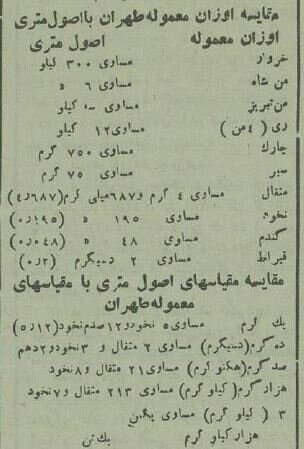 مقایسه اوزان معموله طهران با اصول متری
اوزان معموله اصول متری
خروار مساوی ۳۰۰ کیلو
من شاه مساوی ۶ »
من تبریز مساوی ۳ کیلو
ری (۴ من) مساوی ۱۲ کیلو
چارك مساوی ۷۵۰ گرم
سیر مساوی ۷۵ گرم
مثقال مساوی ۴ گرم و ۶۸۷ میلی گرم (۴٫۶۸۷)
نخود مساوی ۱۹۵ » (۰٫۱۹۵)
گندم مساوی ۴۸ » (۰٫۰۴۸)
قیراط مساوی ۲ دسیگرم (۰٫۲)
مقایسه مقیاسهای اصول متری با مقیاسهای
معموله طهران
یك گرم مساوی ۵ نخود و ۱۲ صدم نخود (۵٫۱۲)
ده گرم (دسیگرم) مساوی ۲ مثقال و ۳ نخود و ۲ دهم
صد گرم (هکتو گرم) مساوی ۲۱ مثقال و ۸ نخود
هزار گرم (کیلو گرم) مساوی ۲۱۳ مثقال و ۷ نخود
۳ (کیلو گرم) مساوی یکمن
هزار کیلو گرم یك تن